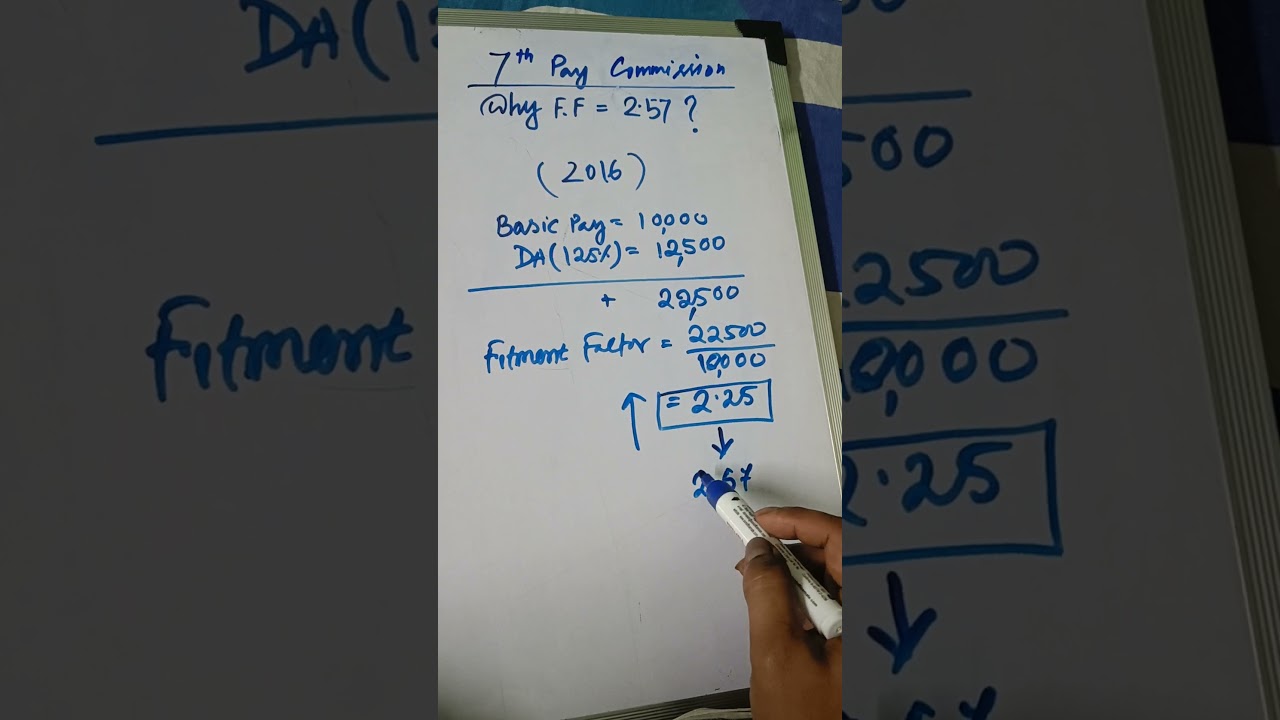 7th Pay Commission
Why F.F = 2.57 ?
(2016)
Basic Pay = 10,000
DA (125%) = 12,500
+ 22,500
Fitment Factor = 22500
10,000
= 2.25
2.57